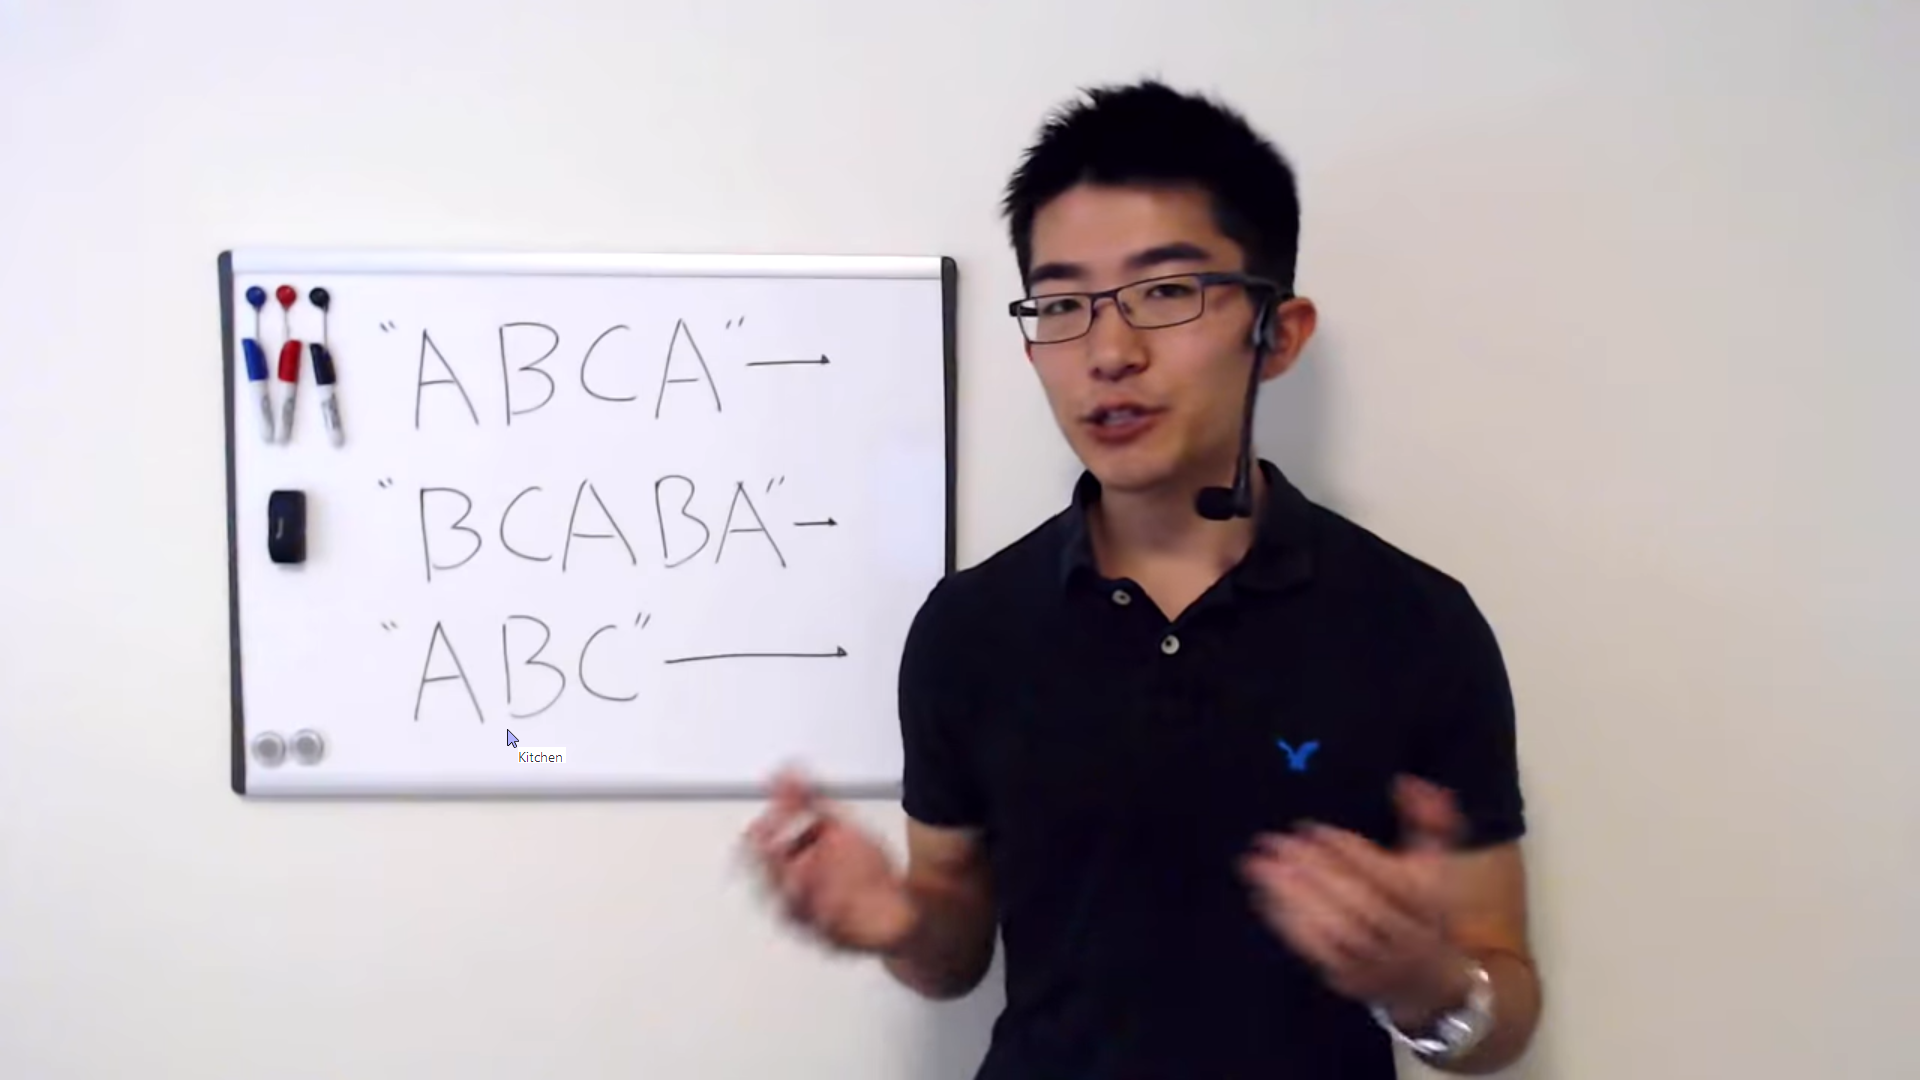 "ABCA" →
"BCABA" →
"ABC" →
Kitchen